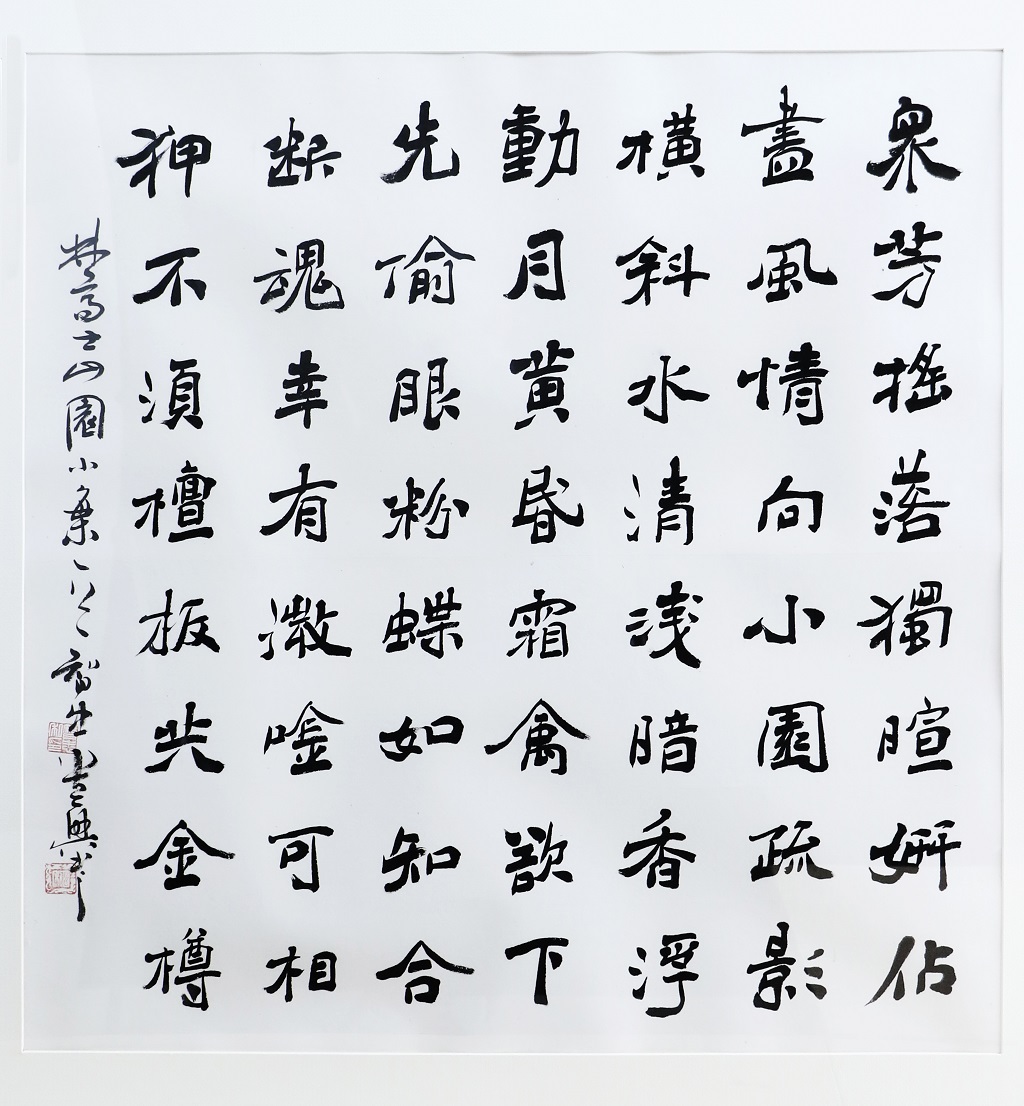 衆芳搖落獨暄妍佔
盡風情向小園疏影
橫斜水清淺暗香浮
動月黃昏霜禽欲下
先偷眼粉蝶如知合
斷魂幸有微唫可相
狎不須檀板共金樽
林高士山園小梅